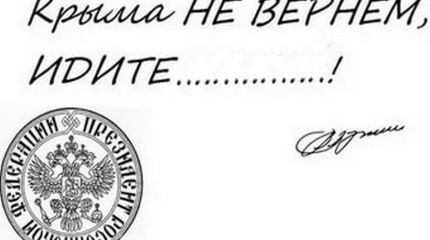 Крыма НЕ ВЕРНЕМ,
ИДИТЕ................!
ПРЕЗИДЕНТ РОССИЙСКОЙ ФЕДЕРАЦИИ